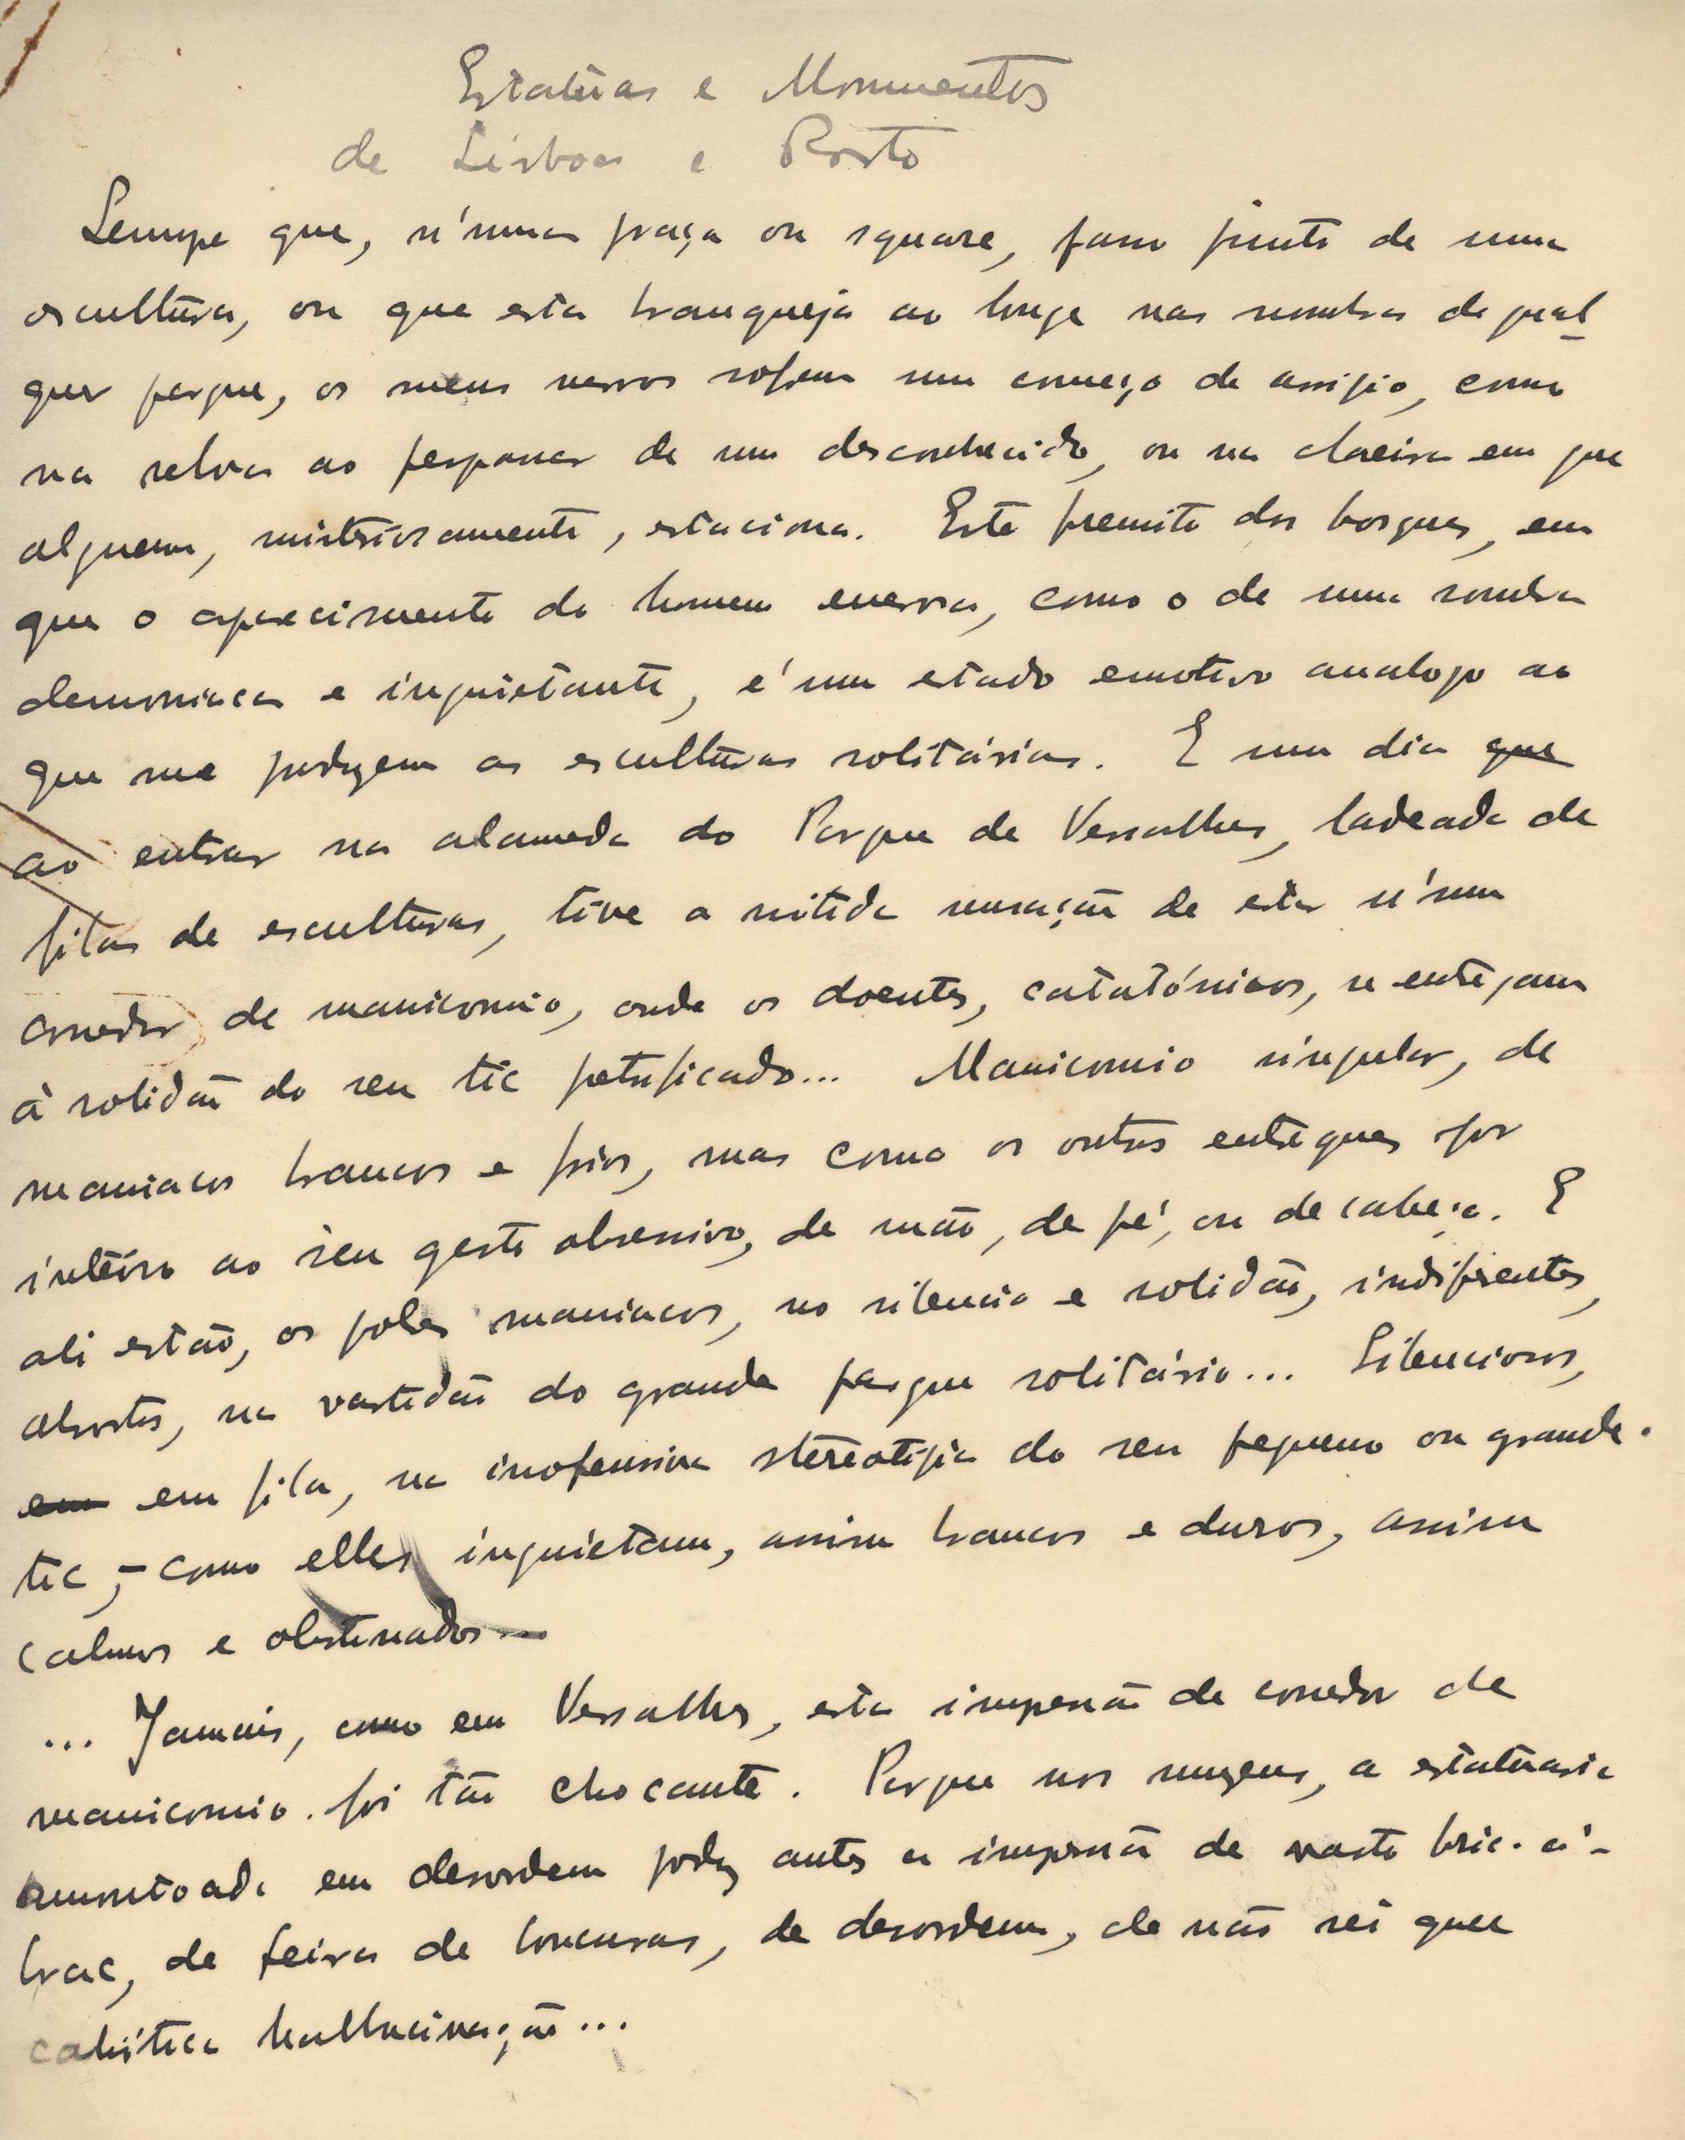 Estatúas e Monumentos
de Lisboa e Porto
Sempre que, n'uma praça ou square, passo junto de uma
escultura, ou que esta branqueja ao longe nas sombras de qual
quer parque, os meus nervos sofrem um começo de arrepio, como
na selva ao perpassar de um desconhecido, ou na clareira em que
alguem, misteriosamente, estaciona. Este fremito dos bosques, em
que o aparecimento do homem enerva, como o de uma sombra
demoniaca e inquietante, é um estado emotivo analogo ao
que me produzem as esculturas solitárias. E um dia que
ao entrar na alameda do Parque de Versalhes, ladeada de
filas de esculturas, tive a nitida sensação de estar n'um
corredor de manicomio, onde os doentes, catatónicos, se entregam
à solidão do seu tic petrificado... Manicomio singular, de
maniacos brancos e frios, mas como os outros entregues por
inteiro ao seu gesto obsessivo, de mão, de pé, ou de cabeça. E
ali estão, os pobres maniacos, no silencio e solidão, indiferentes,
absortos, na vastidão do grande parque solitário... Silenciosos,
em em fila, na inofensiva stereotipia do seu pequeno ou grande
tic, - como elles inquietam, assim brancos e duros, assim
calmos e obstinados —
... Jamais, como em Versalhes, esta impressão de corredor de
manicomio foi tão chocante. Porque nos museus, a estatuaria
amontoada em desordem produz antes a impressão de vasto bric-à-
brac, de feira de loucuras, de desordem, de não sei que
caótica hallucinação...